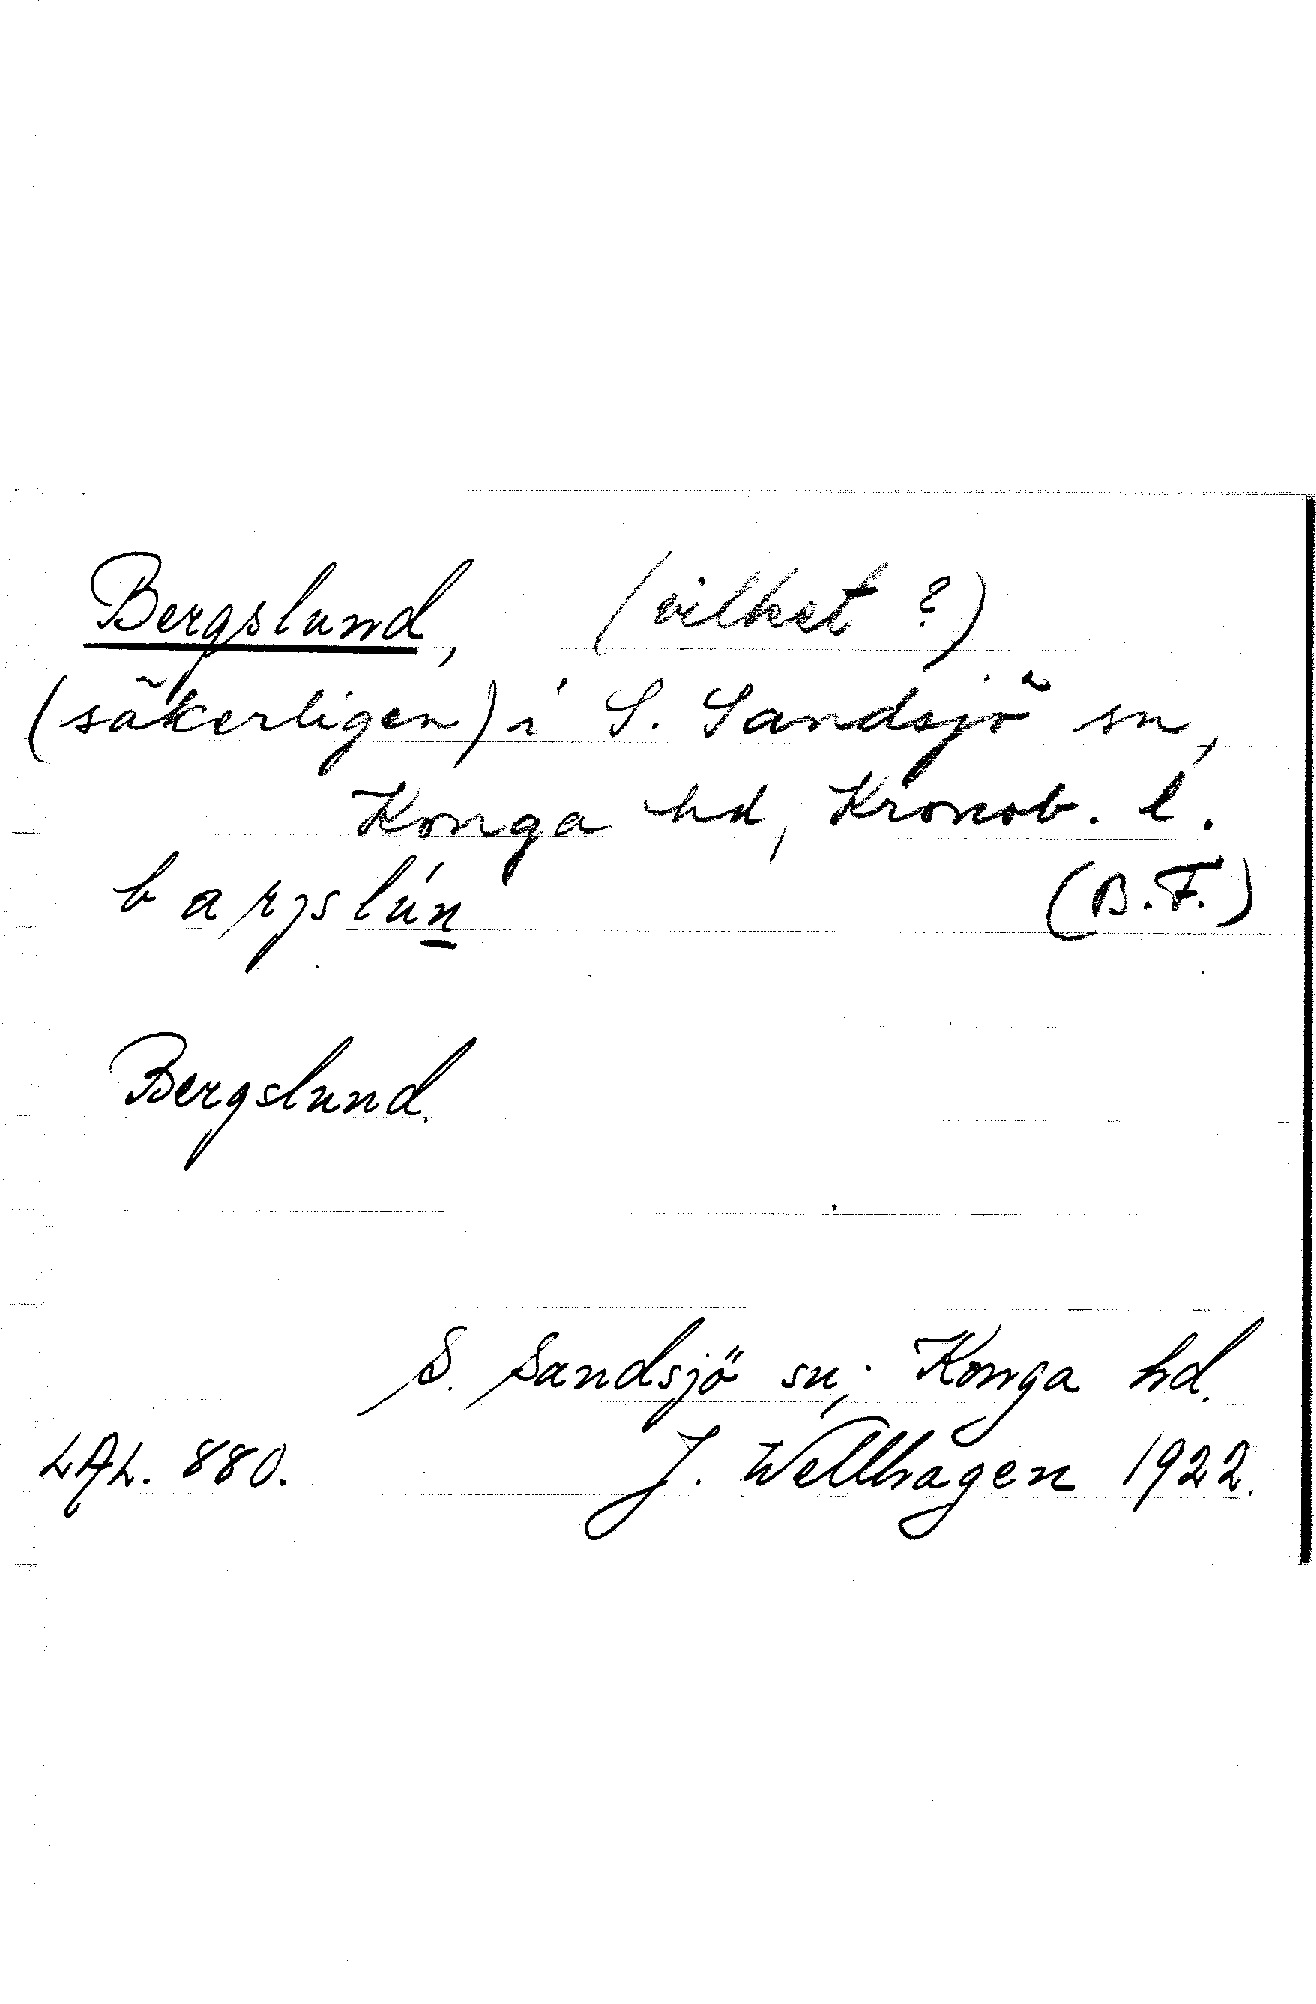 Bergslund, (vilket ?)
(säkerligen) i S. Sandsjö sn,
Konga hd, Kronob. l.
barjslún (B.F.)
Bergslund.
S. Sandsjö sn; Konga hd.
LAL. 880. J. Wellhagen 1922.